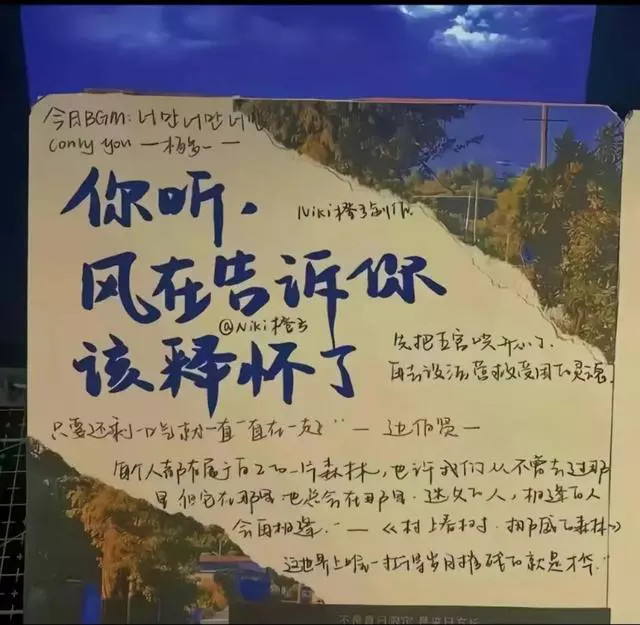 今日BGM: 너만너만너만
(only you 一杨多一一
你听.
Niki橙子创作.
风在告诉你
@Niki橙子
该释怀了
先把五官哄开心了.
再去设法营救受困的灵魂.
只要还剩一口气就一直"直在一起" — 边伯贤 —
每个人都有属于自己的一片森林,也许我们从不曾去过那
里 但它在那里 也总会在那里.迷失的人,相逢的人
会再相逢." — 《村上春树·挪威的森林》
这世界上唯一扛得岁月摧残的就是才华."